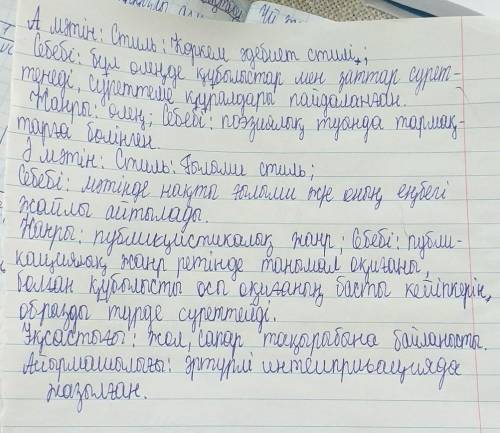 А мәтін: Стиль: Көркем әдебиет стилі;
Себебі: бұл өлеңде құбылыстар мен заттар сурет-
тенеді, суреттеме құралдары пайдаланған.
Жанры: өлең; Себебі: поэзиялық туында тармақ-
тарға бөлінген.
Ә мәтін: Стиль: Ғылыми стиль;
Себебі: мәтінде нақты ғылыми және оның еңбегі
жайлы айтылады.
Жанры: публицистикалық жанр; Себебі: публи-
кациялық жанр ретінде танымал оқиғаны,
болған құбылысты осы оқиғаның басты кейіпкерін,
образды түрде суреттейді.
Ұқсастығы: жол, сапар тақырыбына байланысты.
Айырмашылығы: әртүрлі интеиприпацияда
жазылған.